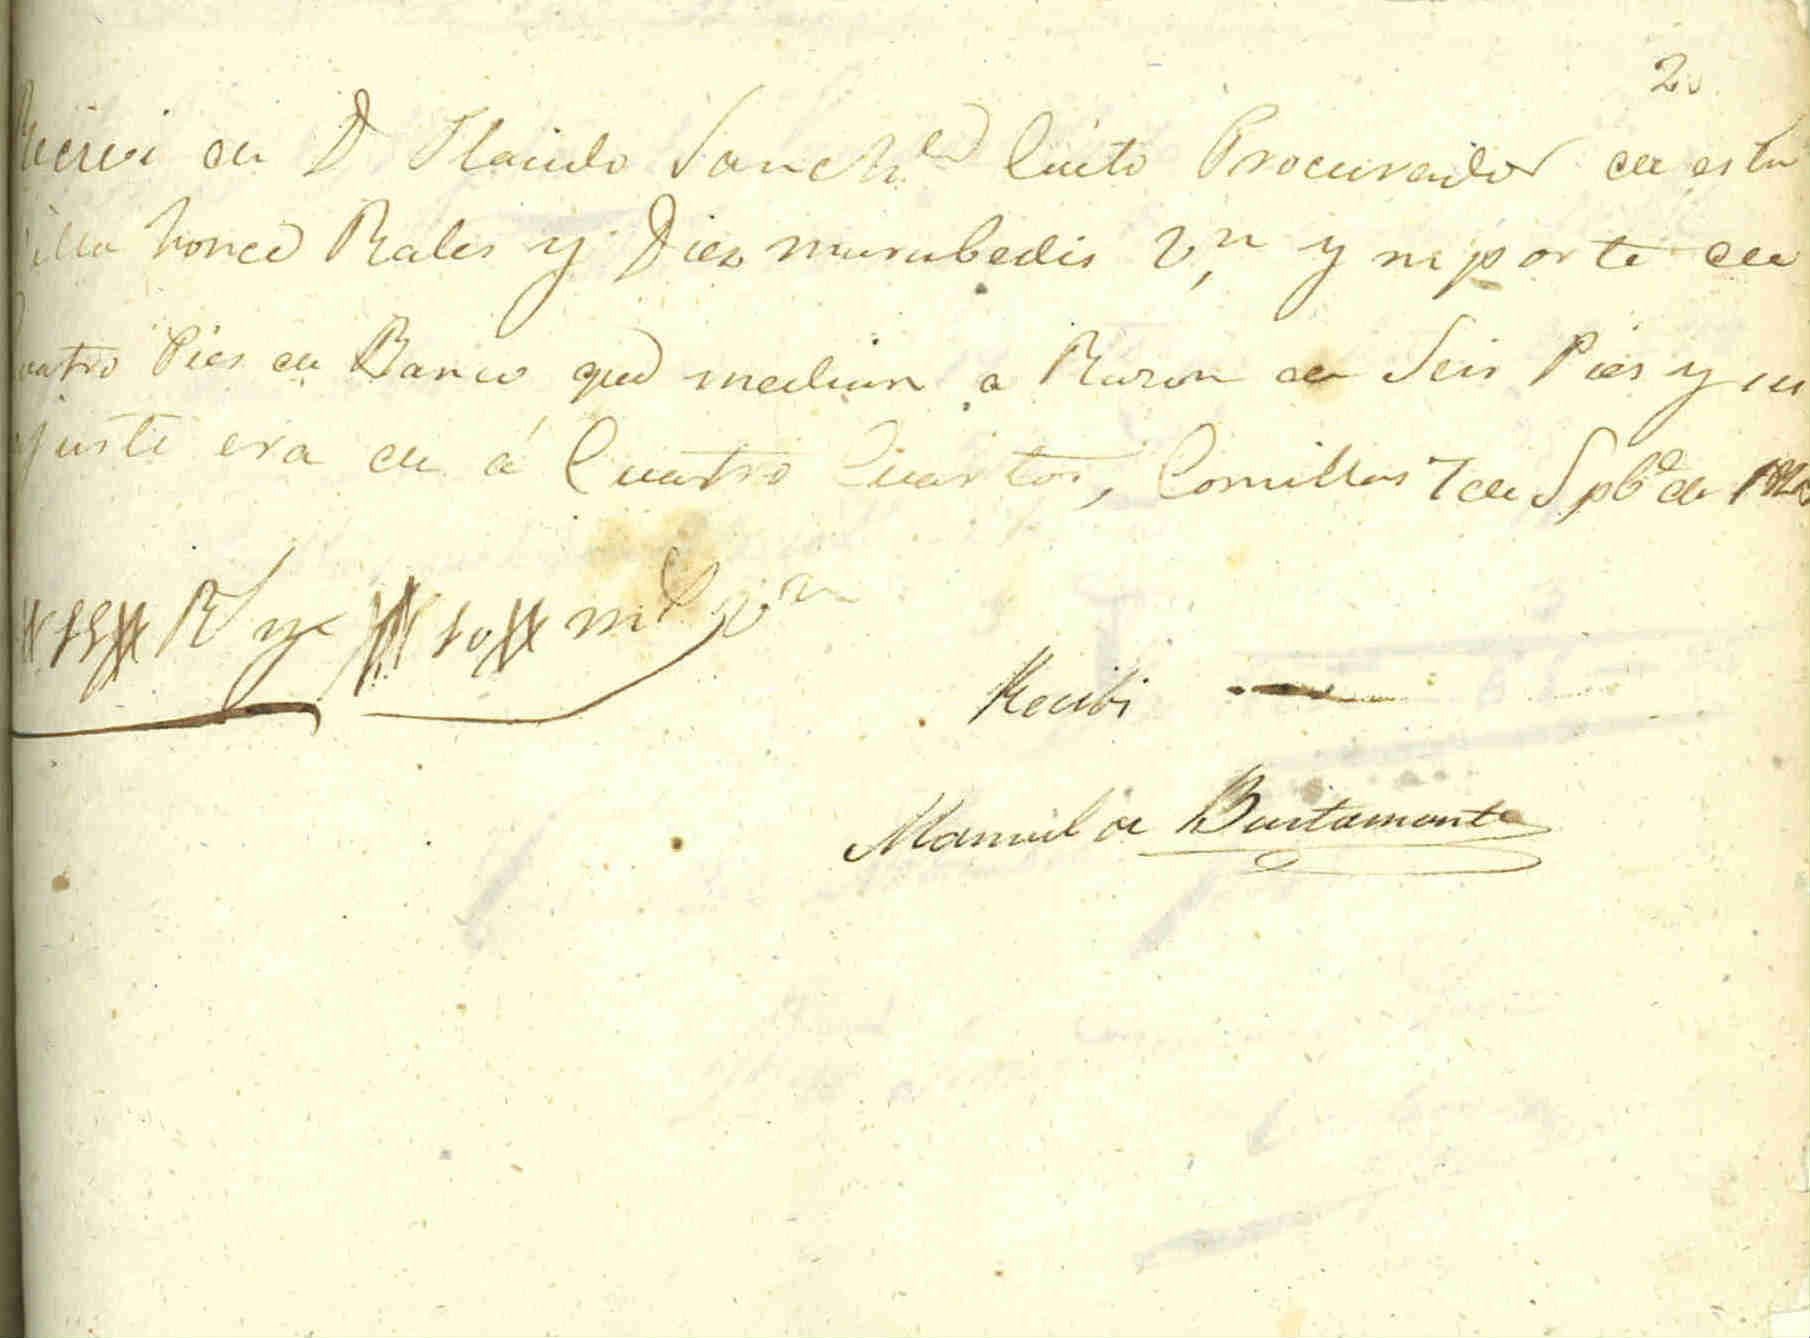 2.
Recivi de D Placido Sanchez Cueto Procurador de esta
Villa honce Rales y Diez marabedis Vn ymporte de
Cuatro Pies de Banco que median a Razon de Seis Pies y su
ajuste era de á Cuatro Cuartos, Comillas 7 de Spbe de
11 Rs y 10 ms Vn
Recibi
Manuel de Bustamante